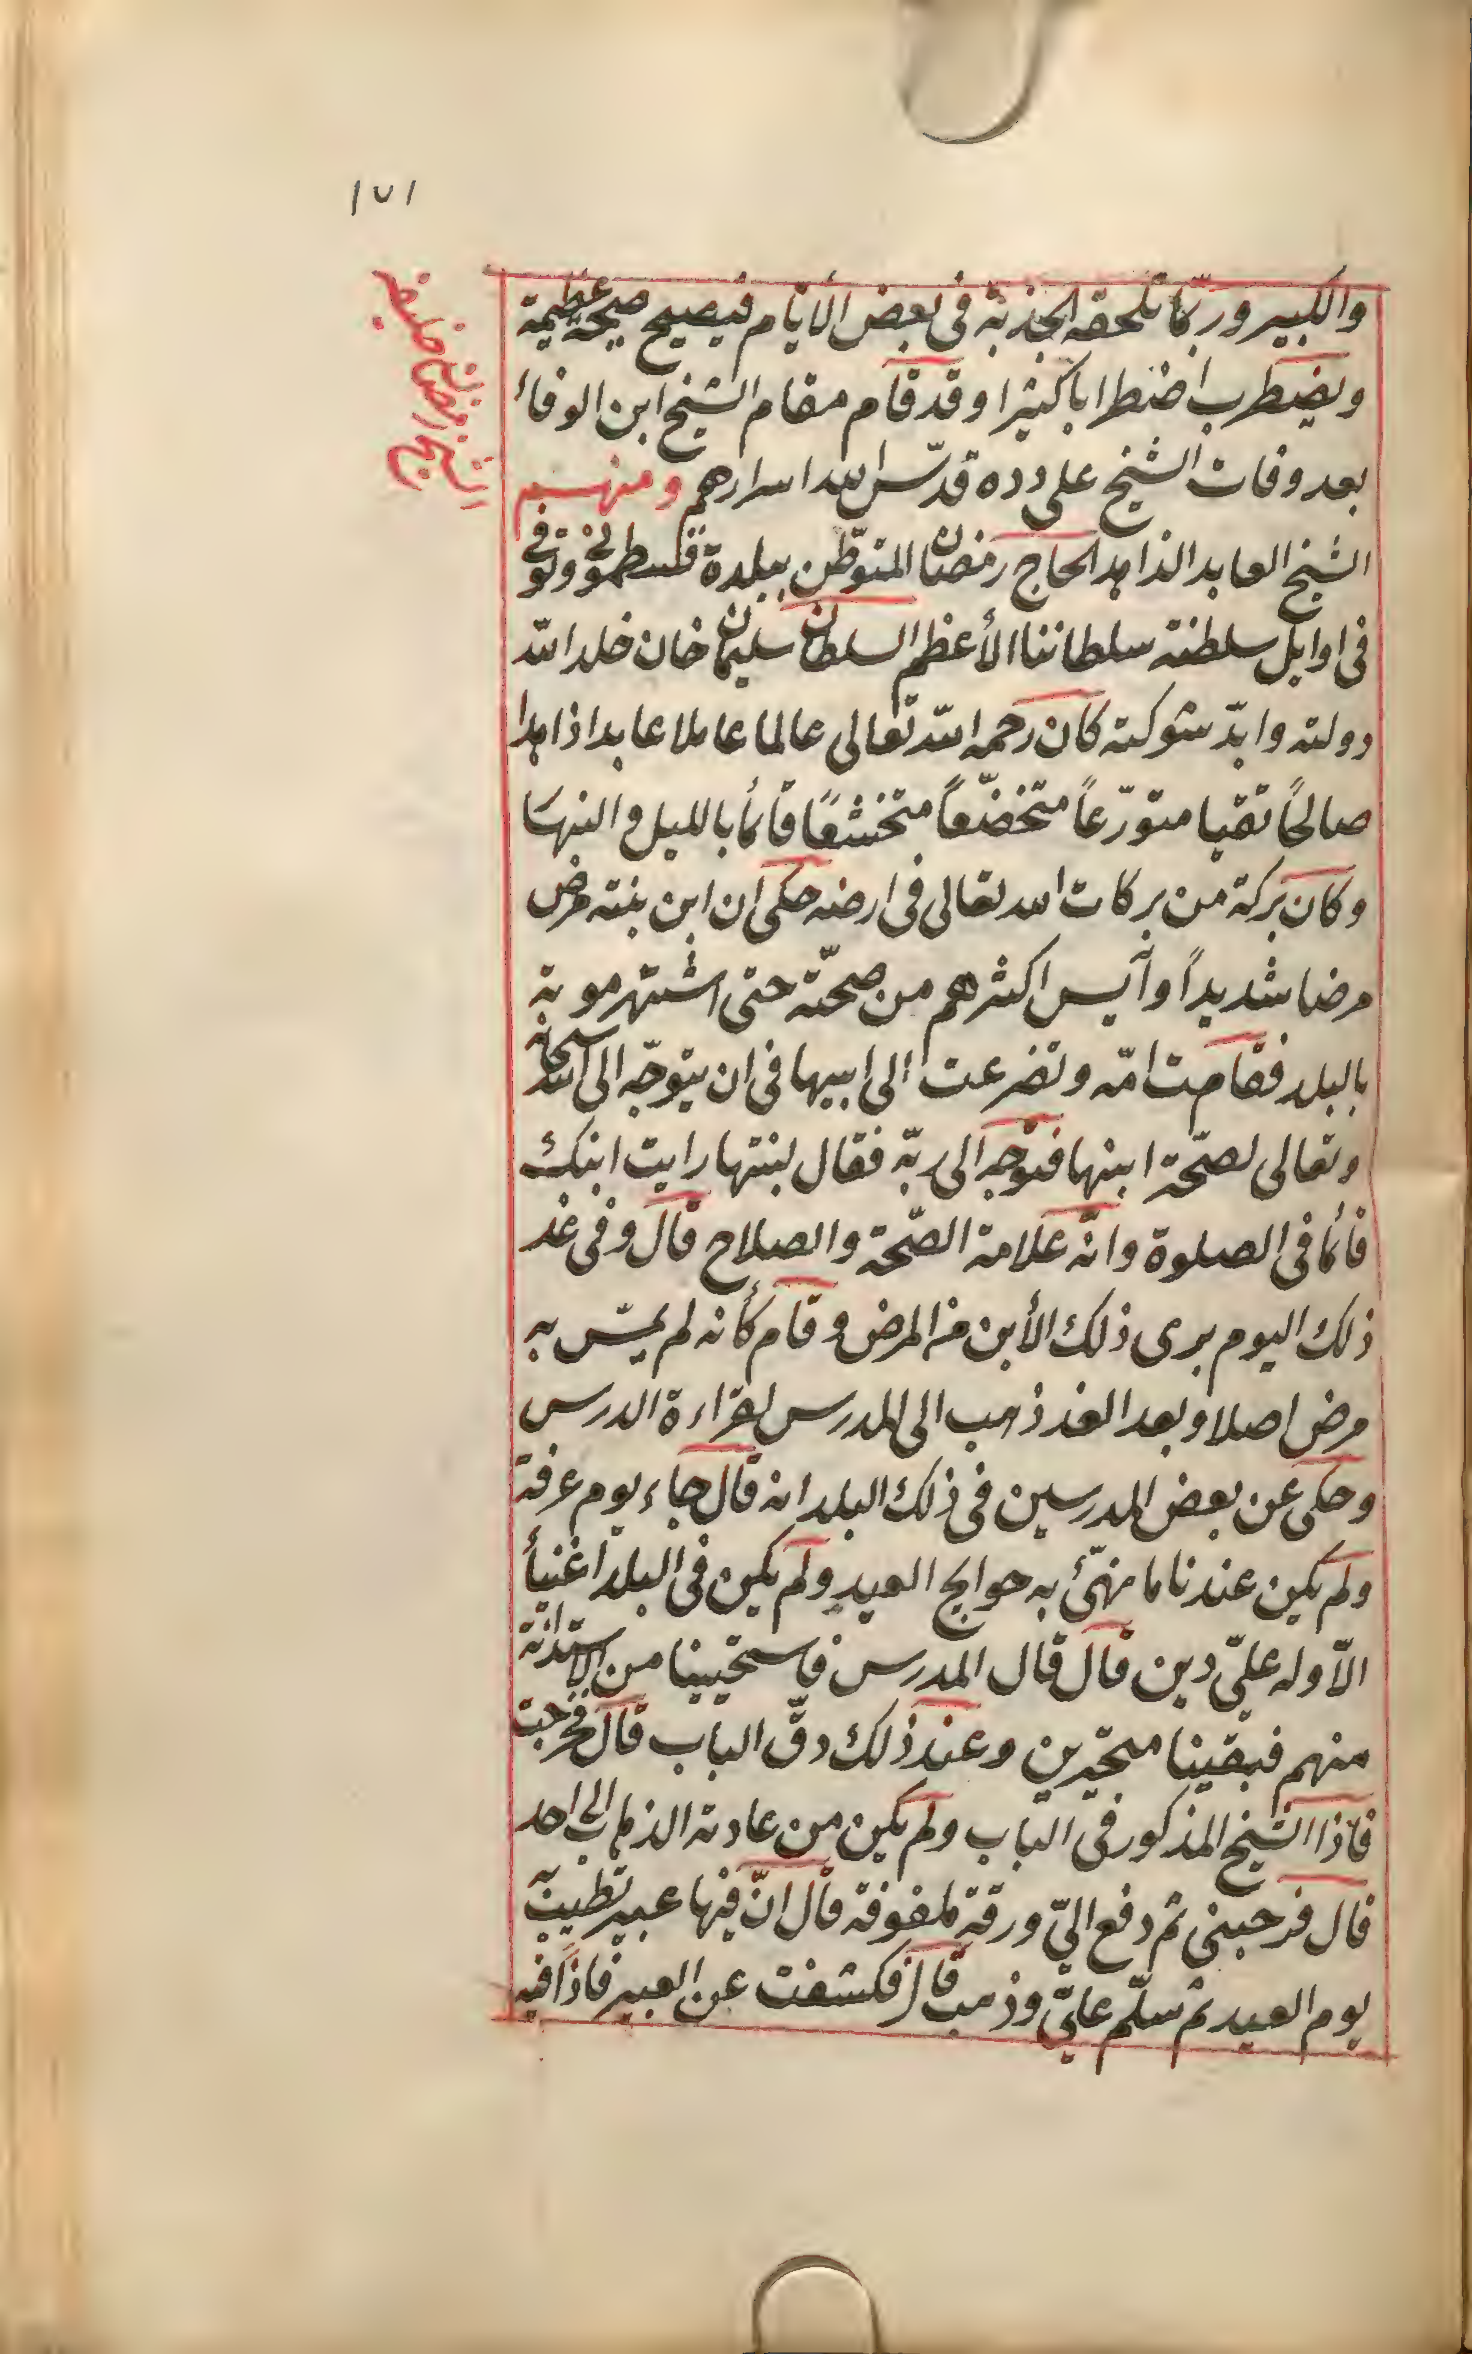 ١٧١
الشيخ رمضان خليفة
والكبير وربّما تلحقه الجذبة فى بعض الأيّام فيصيح صيحة عظيمة
ويضطرب اضطرابا كثيرا وقد قام مقام الشيخ ابن الوفاء
بعد وفات الشيخ على دده قدّس الله اسرارهم ومنهم
الشيخ العابد الذاهد الحاج رمضان المتوطّن ببلدة قسطمونى وتوفى
فى اوايل سلطنة سلطاننا الأعظم السلطان سليمان خان خلد الله
دولته وابدّ شوكته كان رحمه الله تعالى عالما عاملا عابدا ذاهدا
صالحًا تقيا متورّعاً متخضّعاً متخشعًا قائمًا بالليل والنهار
وكان بركة من بركات الله تعالى فى ارضه حكى ان ابن بنته مرض
مرضا شديداً وآيس اكثرهم من صحّته حتى اشتهر موته
بالبلد فقامت امّه وتضرعت الى ابيها فى ان يتوجّه الى الله سبحانه
وتعالى لصحّة ابنها فتوجه الى ربّه فقال لبنتها رايت ابنك
قائما فى الصلوة وانّه علامة الصّحة والصلاح قال وفى غد
ذلك اليوم برى ذلك الأبن من المرض وقام كأنه لم يمسّ به
مرض اصلا وبعد الغد ذهب الى المدرس لقراءة الدرس
وحكى عن بعض المدرسين فى ذلك البلد انه قال جاء يوم عرفة
ولم يكن عندنا ما نهيّئ به حوايج العيد ولم يكن فى البلد اغنيأ
الاّ وله علىّ دين قال قال المدرس فاستحيينا من الاستدانة
منهم فبقينا متحيّرين وعند ذلك دقّ الباب قال فخرجت
فاذا الشيخ المذكور فى الباب ولم يكن من عادته الذهاب الى احد
قال فرحبنى ثم دفع الىّ ورقة ملفوفة قال انّ فيها عبير تطيب به
يوم العيد ثم سلّم علىّ وذهب قال فكشفت عن العبير فاذًا فيه